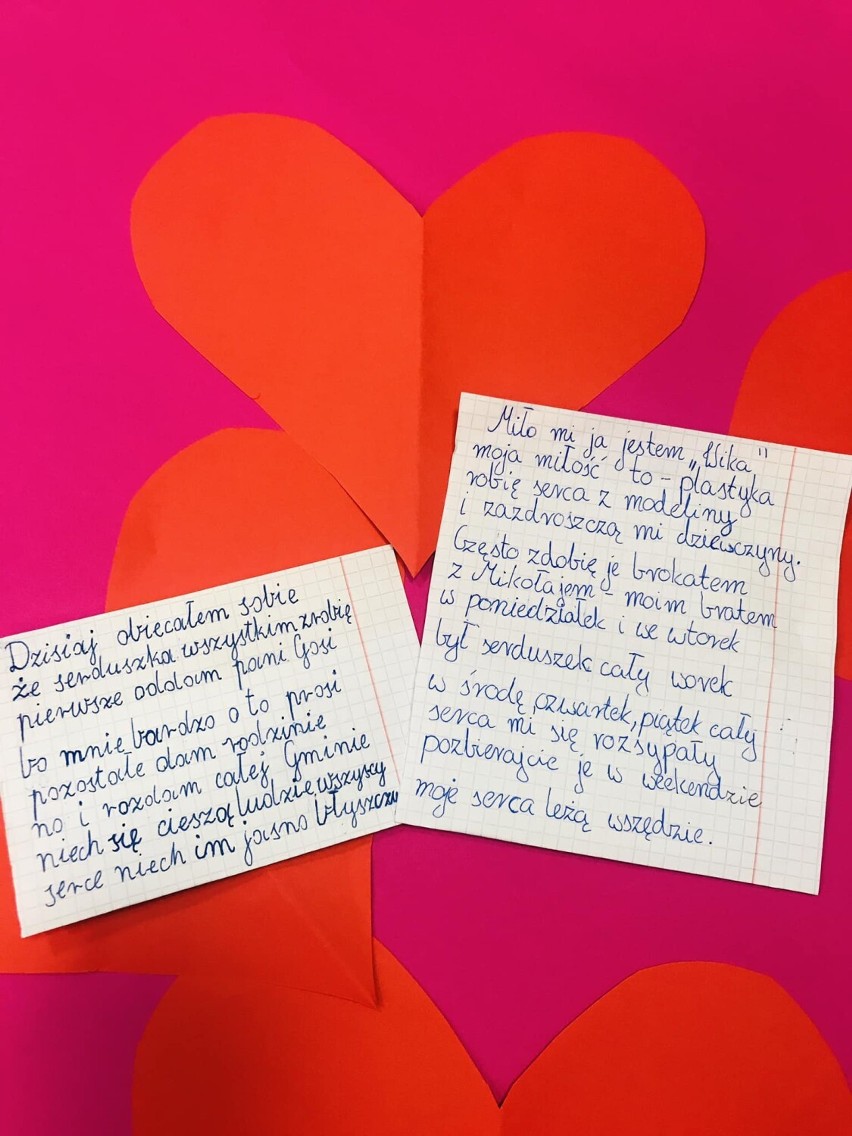 Dzisiaj obiecałem sobie
że serduszka wszystkim zrobię
pierwsze oddam pani Gosi
bo mnie bardzo o to prosi
pozostałe dam rodzinie
no i rozdam całej Gminie
niech się cieszą ludzie wszyscy
serce niech im jasno błyszczy
Miło mi ja jestem „Wika"
moja miłość to - plastyka
robię serca z modeliny
i zazdroszczą mi dziewczyny.
Często zdobię je brokatem
z Mikołajem - moim bratem
w poniedziałek i we wtorek
był serduszek cały worek
w środę, czwartek, piątek cały
serca mi się rozsypały
pozbierajcie je w weekendzie
moje serca leżą wszędzie.